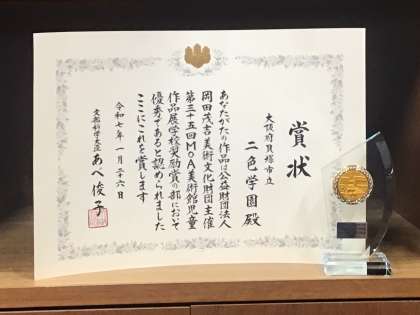 賞状
大阪府貝塚市立
二色学園殿
あなたがたの作品は公益財団法人
岡田茂吉美術文化財団主催
第三十五回MOA美術館児童
作品展学校奨励賞の部において
優秀であると認められました
ここにこれを賞します
令和七年一月二十六日
文部科学大臣 あべ俊子